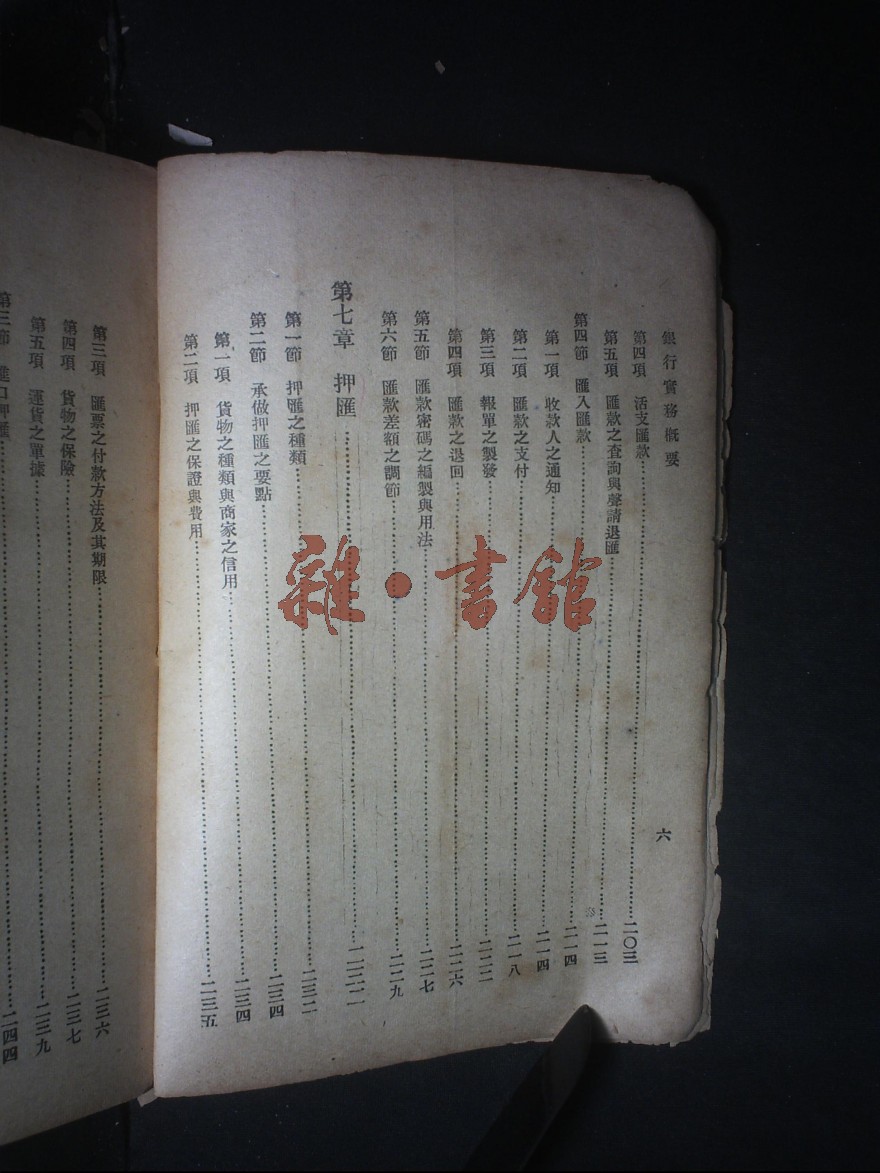 銀行實務概要 六
第四項 活支匯款…………二〇三
第五項 匯款之查詢與聲請退匯…………二一三
第四節 匯入匯款…………二一四
第一項 收款人之通知…………二一四
第二項 匯款之支付…………二一八
第三項 報單之製發…………二二三
第四項 匯款之退回…………二二六
第五節 匯款密碼之編製與用法…………二二七
第六節 匯款差額之調節…………二二九
第七章 押匯…………二三二
第一節 押匯之種類…………二三二
第二節 承做押匯之要點…………二三四
第一項 貨物之種類與商家之信用…………二三四
第二項 押匯之保證與費用…………二三五
第三項 匯票之付款方法及其期限…………二三六
第四項 貨物之保險…………二三七
第五項 運貨之單據…………二三九
第三節 進口押匯…………二四四
雜·書館